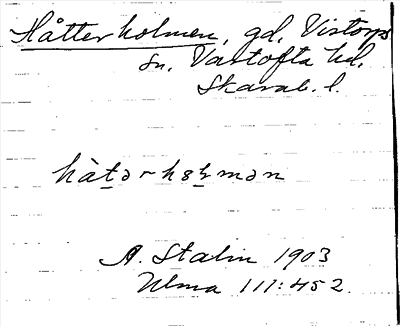 Håtterholmen, gd, Vistorps
sn, Vartofta hd,
Skarab. l.
A. Stalin 1903
Ulma 111:452.